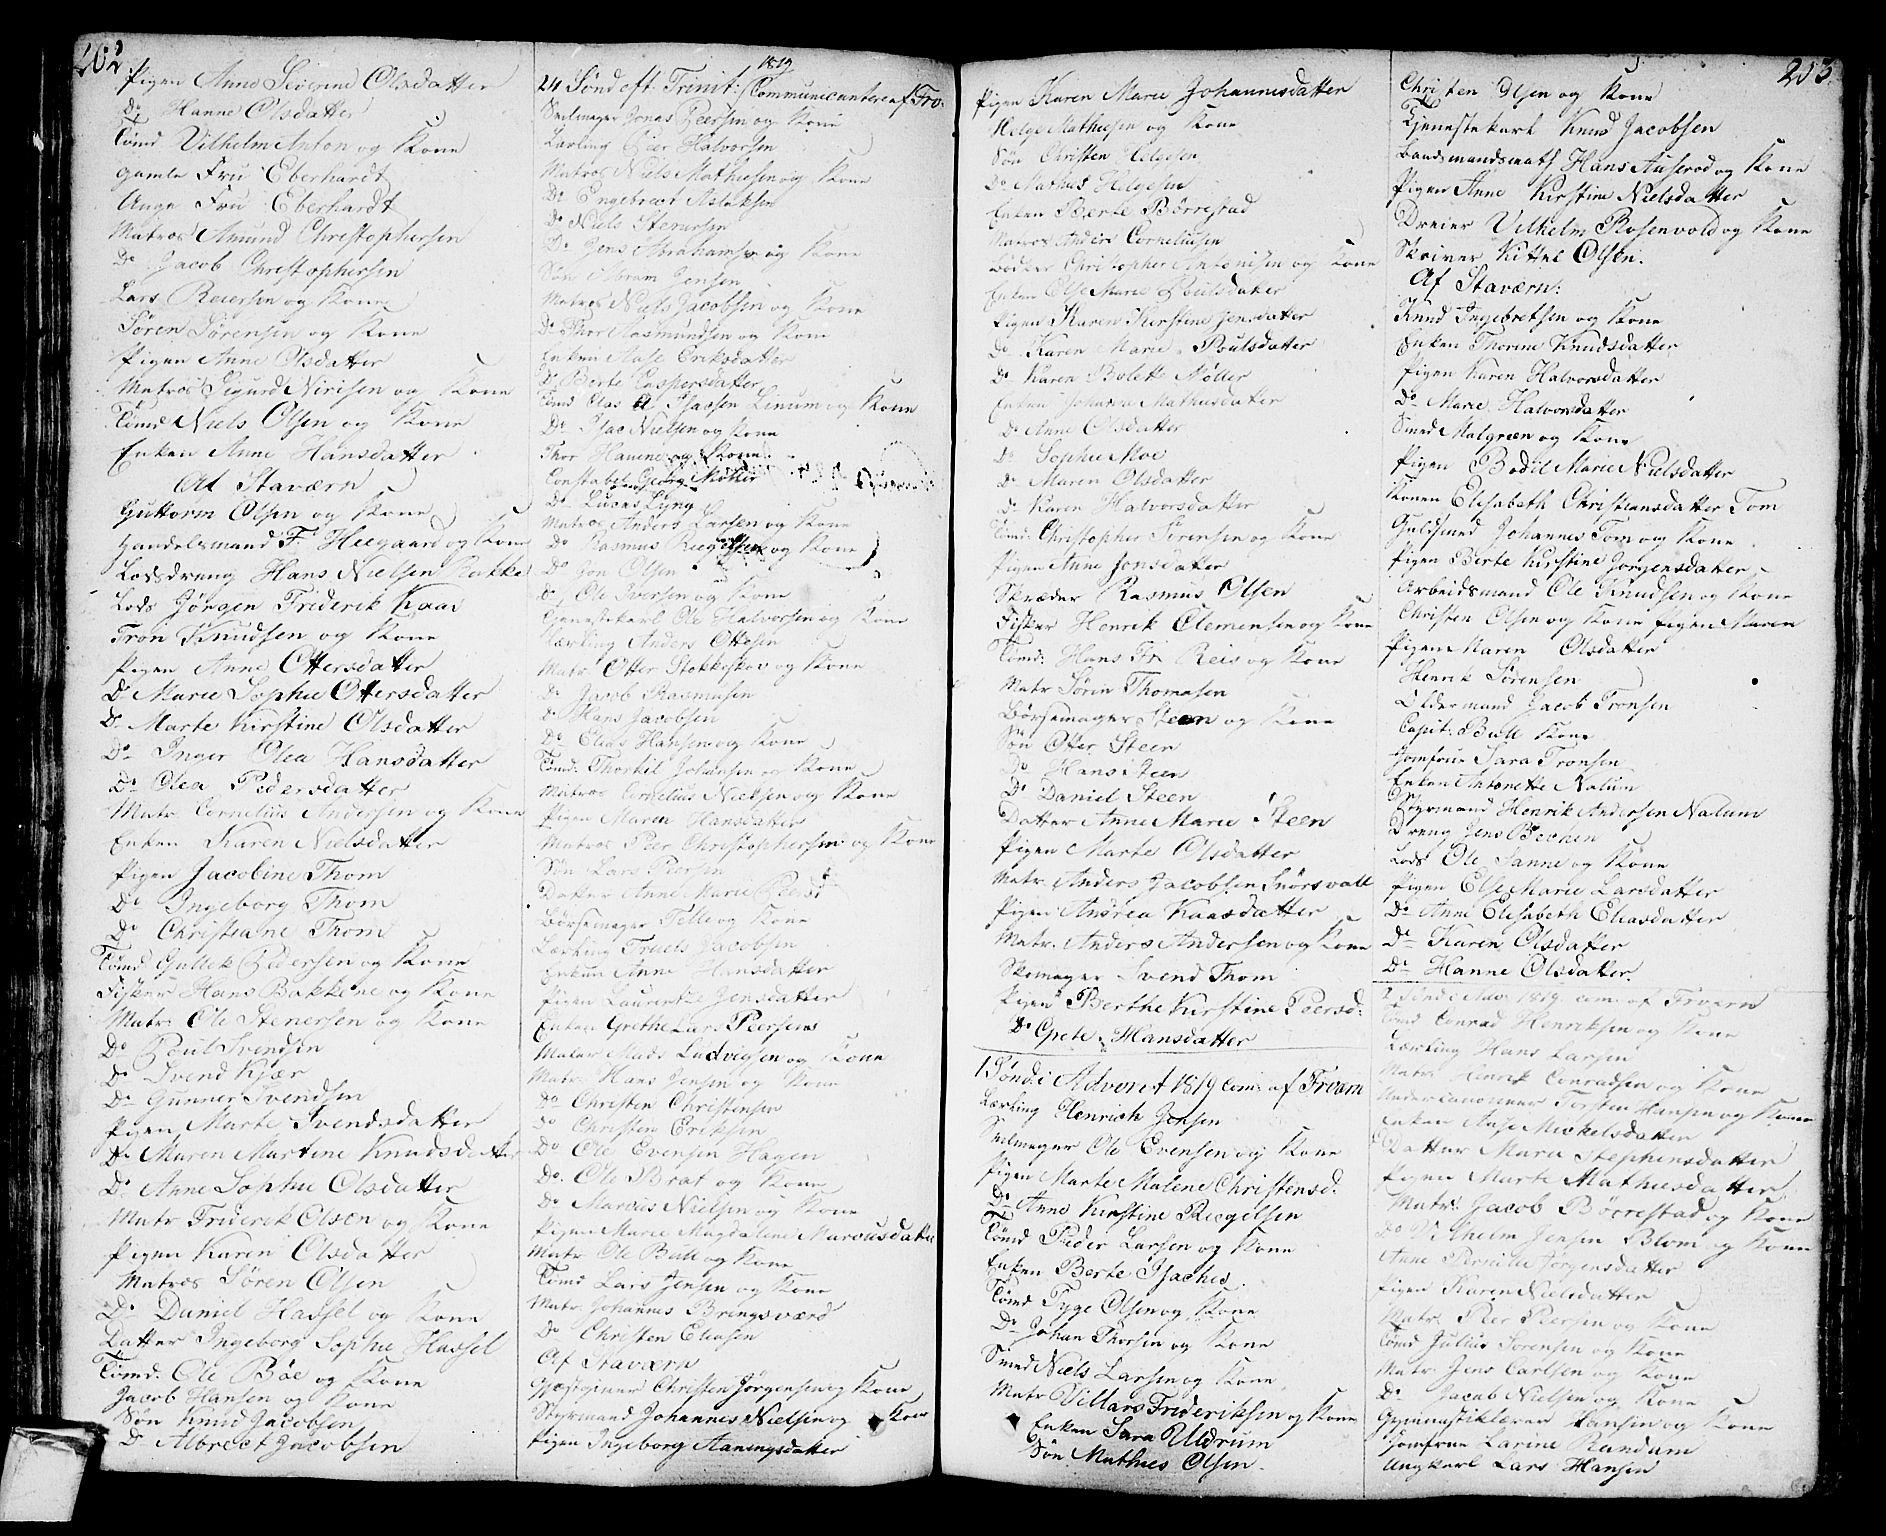 202
Pigen Anne Severine Olsdatter
Do Hanne Olsdatter
Tømd Vilhelm Anton og Kone
gamle Fru Eberhardt
Unge Fru Eberhardt
Matros Amund Christophersen
Do Jacob Christophersen
Lars Reiersen og Kone
Søren Sørensen og Kone
Pigen Anne Olsdatter
Matros Sigurd Nirisen og Kone
Tømd Niels Olsen og Kone
Enken Anne Hansdatter
Af Staværn
Guttorm Olsen og Kone
Handelsmand F. Heegaard og Kone
Lodsdreng Hans Nielsen Rakke
Lods Jørgen Friderik Kaas
Tron Knudsen og Kone
Pigen Anne Ottersdatter
Do Marie Sophie Ottersdatter
Do Marte Kirstine Olsdatter
Do Inger Olea Hansdatter
Do Olea Pedersdatter
Matr. Cornelius Andersen og Kone
Enken Karen Nielsdatter
Pigen Jacobine Thom
Do Ingeborg Thom
Do Christiane Thom
Tømd Gullek Pedersen og Kone
Fisker Hans Bakkene og Kone
Matr. Ole Stenersen og Kone
Do Poul Svendsen
Do Svend Kjær
Do Gunner Svendsen
Pigen Marte Svendsdatter
Do Maren Martine Knudsdatter
Do Anne Sophie Olsdatter
Matr Friderik Olsen og Kone
Pigen Karen Olsdatter
Matros Søren Olsen
Do Daniel Hassel og Kone
Datter Ingeborg Sophie Hassel
Tømd. Ole Bøe og Kone
Jacob Hansen og Kone
Søn Knud Jacobsen
Do Albrect Jacobsen
1819
24 Sønd eft. Trinit: Communicantere af Fr.
Seilmager Jonas Peersen og Kone
Lærling Peer Halvorsen
Matros Niels Mathiesen og Kone
Do Engebrect Aslaksen
Do Niels Stenersen
Do Jens Abrahamsen og Kone
Søn Abram Jensen
Matros Niels Jacobsen og Kone
Do Thor Rasmundsen og Kone
Enken Aase Eriksdatter
Do Berte Caspersdatter
Tømd Clas Isacsen Linum og Kone
Do Isac Nielsen og Kone
Thor Havene og Kone
Constabel Georg Møller
Do Lucas Lyng
Matros Anders Larsen og Kone
Do Rasmus og Kone
Do Jon Olsen
Do Ole Iversen og Kone
Tjenestekarl Ole Halvorsen og Kone
Lærling Anders Ottesen
Matr. Otter Stokkeskov og Kone
Do Jacob Rasmusen
Do Hans Jacobsen
Do Elias Hansen og Kone
Tømd. Thorkil Johansen og Kone
Matros Cornelius Nielsen og Kone
Pigen Maren Hansdatter
Matros Peer Christophersen og Kone
Søn Lars Peersen
Datter Anne Marie Peersd
Børsemager Telle og Kone
Lærling Truels Jacobsen
Enken Anne Hansdatter
Pigen Laurentze Jensdatter
Enken Grethe Lars Peersens
Maler Mads Ludvigsen og Kone
Matr. Hans Jensen og Kone
Do Christen Christensen
Do Christen Eriksen
Do Ole Evensen Hagen
Do. Ole Brat og Kone
Do Marcus Nielsen og Kone
Pigen Marie Magdalene Marcusdatter
Matr Ole Bull og Kone
Tømd Lars Jensen og Kone
Matr. Johannes Bringsværd
Do Christen Eliasen
Af Staværn
Gjæstgiver Christen Jørgensen og Kone
Styrmand Johannes Nielsen og Kone
Pigen Ingeborg Aaningsdatter
203
Pigen Karen Marie Johannesdatter
Helge Mathiesen og Kone
Søn Christen Helgesen
Do Mathies Helgesen
Enken Berte Børrestad
Matros Anders Corneliusen
Bødker Christopher Antonisen og Kone
Enken Else Marie Poulsdatter
Pigen Karen Kirstine Jensdatter
Do Karen Marie Poulsdatter
Do Karen Bolett Møller
Enken Johanna Mathiesdatter
Do Anne Olsdatter
Do Sophie Moe
Do Maren Olsdatter
Do Karen Halvorsdatter
Tømd. Christopher Sørensen og Kone
Pigen Anne Jonsdatter
Skræder Rasmus Olsen
Fisker Henrik Clemensen og Kone
Tømd: Hans Fr. Reis og Kone
Matr Sørin Thomasen
Børsemager Steen og Kone
Søn Otter Steen
Do Hans Steen
Do Daniel Steen
Datter Anne Marie Steen
Pigen Marte Olsdatter
Matr. Anders Jacobsen Snørsvall
Pigen Andrea Kaasdatter
Matr. Anders Andersen og Kone
Skomager Svend Thom
Pigen Berthe Kirstine Peersd:
Do Grete Hansdatter
1 Sønd: i Advent 1819 Com: af Frværn
Lærling Henrich Jensen
Seilmager Ole Evensen og Kone
Pigen Marte Malene Christensd.
Do Anne Kirstine Riegelsen
Tømd Peder Larsen og Kone
Enken Berte Isachs
Tømd Tyge Olsen og Kone
Do Johan Thorsen og Kone
Smed Niels Larsen og Kone
Matr Villars Frideriksen og Kone
Enken Sara Uldrum
Søn Mathies Olsen
Christen Olsen og Kone
Tjenestekarl Knud Jacobsen
Baadsmandsmath Hans Auserod og Kone
Pigen Anne Kirstine Nielsdatter
Dreier Vilhelm Rosenvold og Kone
Skriver Kittel Olsen.
Af Staværn:
Knud Ingebretsen og Kone
Enken Thorine Knudsdatter
Pigen Karen Halvorsdatter
Do Marie Halvorsdatter
Smed Malgreen og Kone
Pigen Bodil Marie Nielsdatter
Konen Elisabeth Christiansdatter Tom
Guldsmed Johannes Tom og Kone
Pigen Berte Kirstine Jørgensdatter
Arbeidsmand Ole Knudsen og Kone
Christen Olsen og Kone Pigen Maren
Pigen Maren Olsdatter
Henrik Sørensen
Oldermand Jacob Tronsen
Capit: Bull Kone
Jomfrue Sara Tronsen
Enken Antonette Nalum
Styrmand Henrik Andersen Nalum
Dreng Jens Bechen
Lods Ole Sanne og Kone
Pigen Else Marie Larsdatter
Do Anne Elisabeth Eliasdatter
Do Karen Olsdatter
Do Hanne Olsdatter.
2 Sønd i Adv. 1819. com: af Frværn
Tømd Conrad Henriksen og Kone
Lærling Hans Larsen
Matr Henrik Conradsen og Kone
Undercanoneer Torsten Hansen og Kone
Enken Aase Mickelsdatter
Datter Maria Stephensdatter
Pigen Marte Mathiesdatter
Matr. Jacob Børrestad og Kone
Do Vilhelm Jensen Blom og Kone
Anne Pernille Jørgensdatter
Pigen Karen Nielsdatter
Matr. Peer Peersen og Kone
Tømd Julius Sørensen og Kone
Matr Jens Carlsen og Kone
Do Jacob Nielsen og Kone
Gymnastiklærer Hansen og Kone
Jomfrue Larine Randum
Ungkarl Lars Hansen